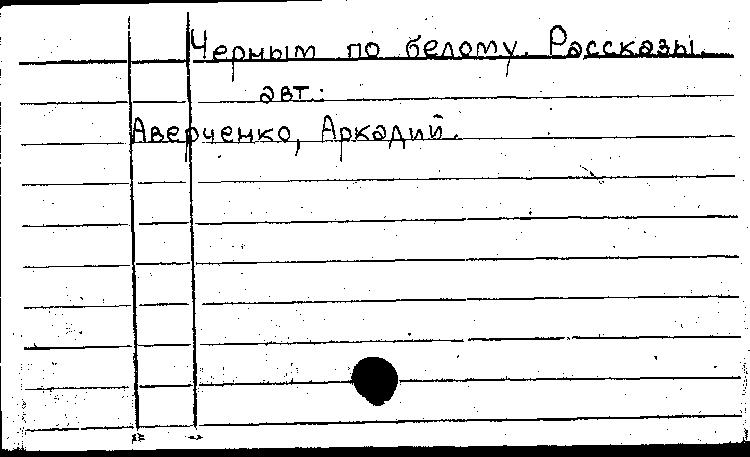 Черным по белому. Рассказы.
авт.:
Аверченко, Аркадий.